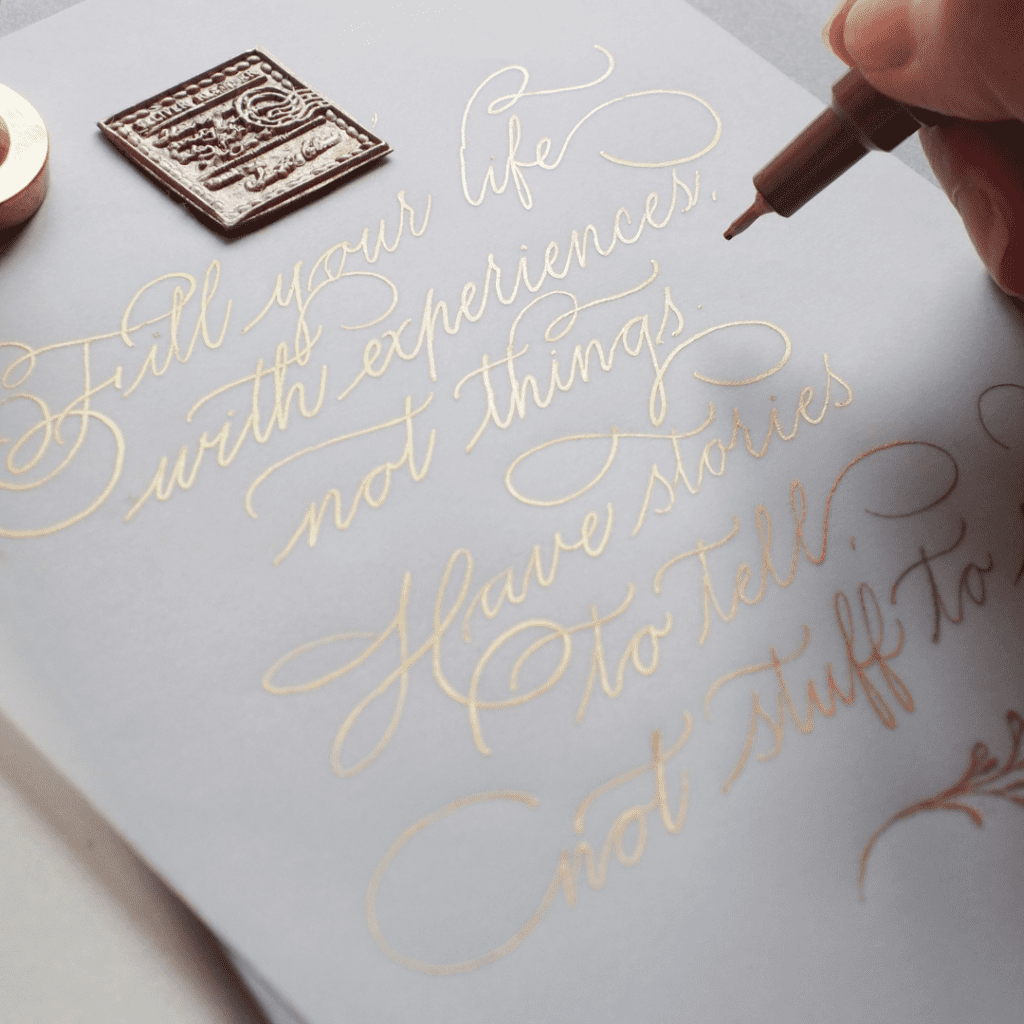 Fill your life
with experiences,
not things.
Have stories
to tell,
not stuff to